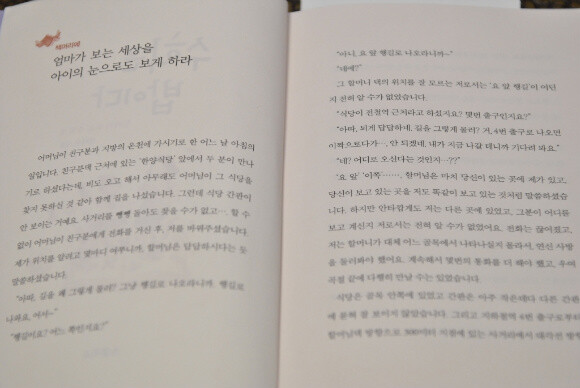 테마리메
엄마가 보는 세상을
아이의 눈으로도 보게 하라
어머님이 친구분과 지방의 온천에 가시기로 한 어느 날 아침의
일입니다. 친구분댁 근처에 있는 '한양식당' 앞에서 두 분이 만나
기로 하셨다는데, 비도 오고 해서 아무래도 어머님이 그 식당을
찾지 못하실 것 같아 함께 길을 나섰습니다. 그런데 식당 간판이
안 보이는 거예요. 사거리를 뺑뺑 돌아도 찾을 수가 없고…. 할 수
없이 어머님이 친구분에게 전화를 거신 후, 저를 바꿔주셨습니다.
제가 위치를 알려고 몇마디 여쭈니까, 할머님은 답답하시다는 듯
말씀하셨습니다.
"아따, 길을 왜 그렇게 몰러? 그냥 행길로 나오라니까, 행길로
나와요, 어서~"
"행길이요? 어느 쪽인지요?"
"아니, 요 앞 행길로 나오라니까~"
"네에?"
그 할머니 댁의 위치를 잘 모르는 저로서는 '요 앞 행길'이 어딘
지 전혀 알 수가 없었습니다.
"식당이 전철역 근처라고 하셨지요? 몇번 출구인지요?"
"아따, 되게 답답하네, 길을 그렇게 몰러? 거, 4번 출구로 나오면
이짝으로다가…, 안 되겠네, 내가 지금 나갈 테니까 기다려 봐요."
"네? 어디로 오신다는 것인지…??"
'요 앞' '이쪽'……, 할머님은 마치 당신이 있는 곳에 제가 있고,
당신이 보고 있는 곳을 저도 똑같이 보고 있는 것처럼 말씀하셨습
니다. 하지만 안타깝게도 저는 다른 곳에 있었고, 그분이 어디를
보고 계신지 저로서는 전혀 알 수가 없었어요. 전화는 끊어졌고,
저는 할머니가 대체 어느 골목에서 나타나실지 몰라서, 연신 사방
을 둘러봐야 했어요. 계속해서 몇번의 통화를 더 해야 했고, 우여
곡절 끝에 다행히 만날 수는 있었습니다.
식당은 골목 안쪽에 있었고 간판은 아주 작은데다 다른 간판
에 묻혀 잘 보이지 않았습니다. 그리고 지하철역 4번 출구로부터
할머님댁 방향으로 300미터 지점에 있는 사거리에서 대각선 방향